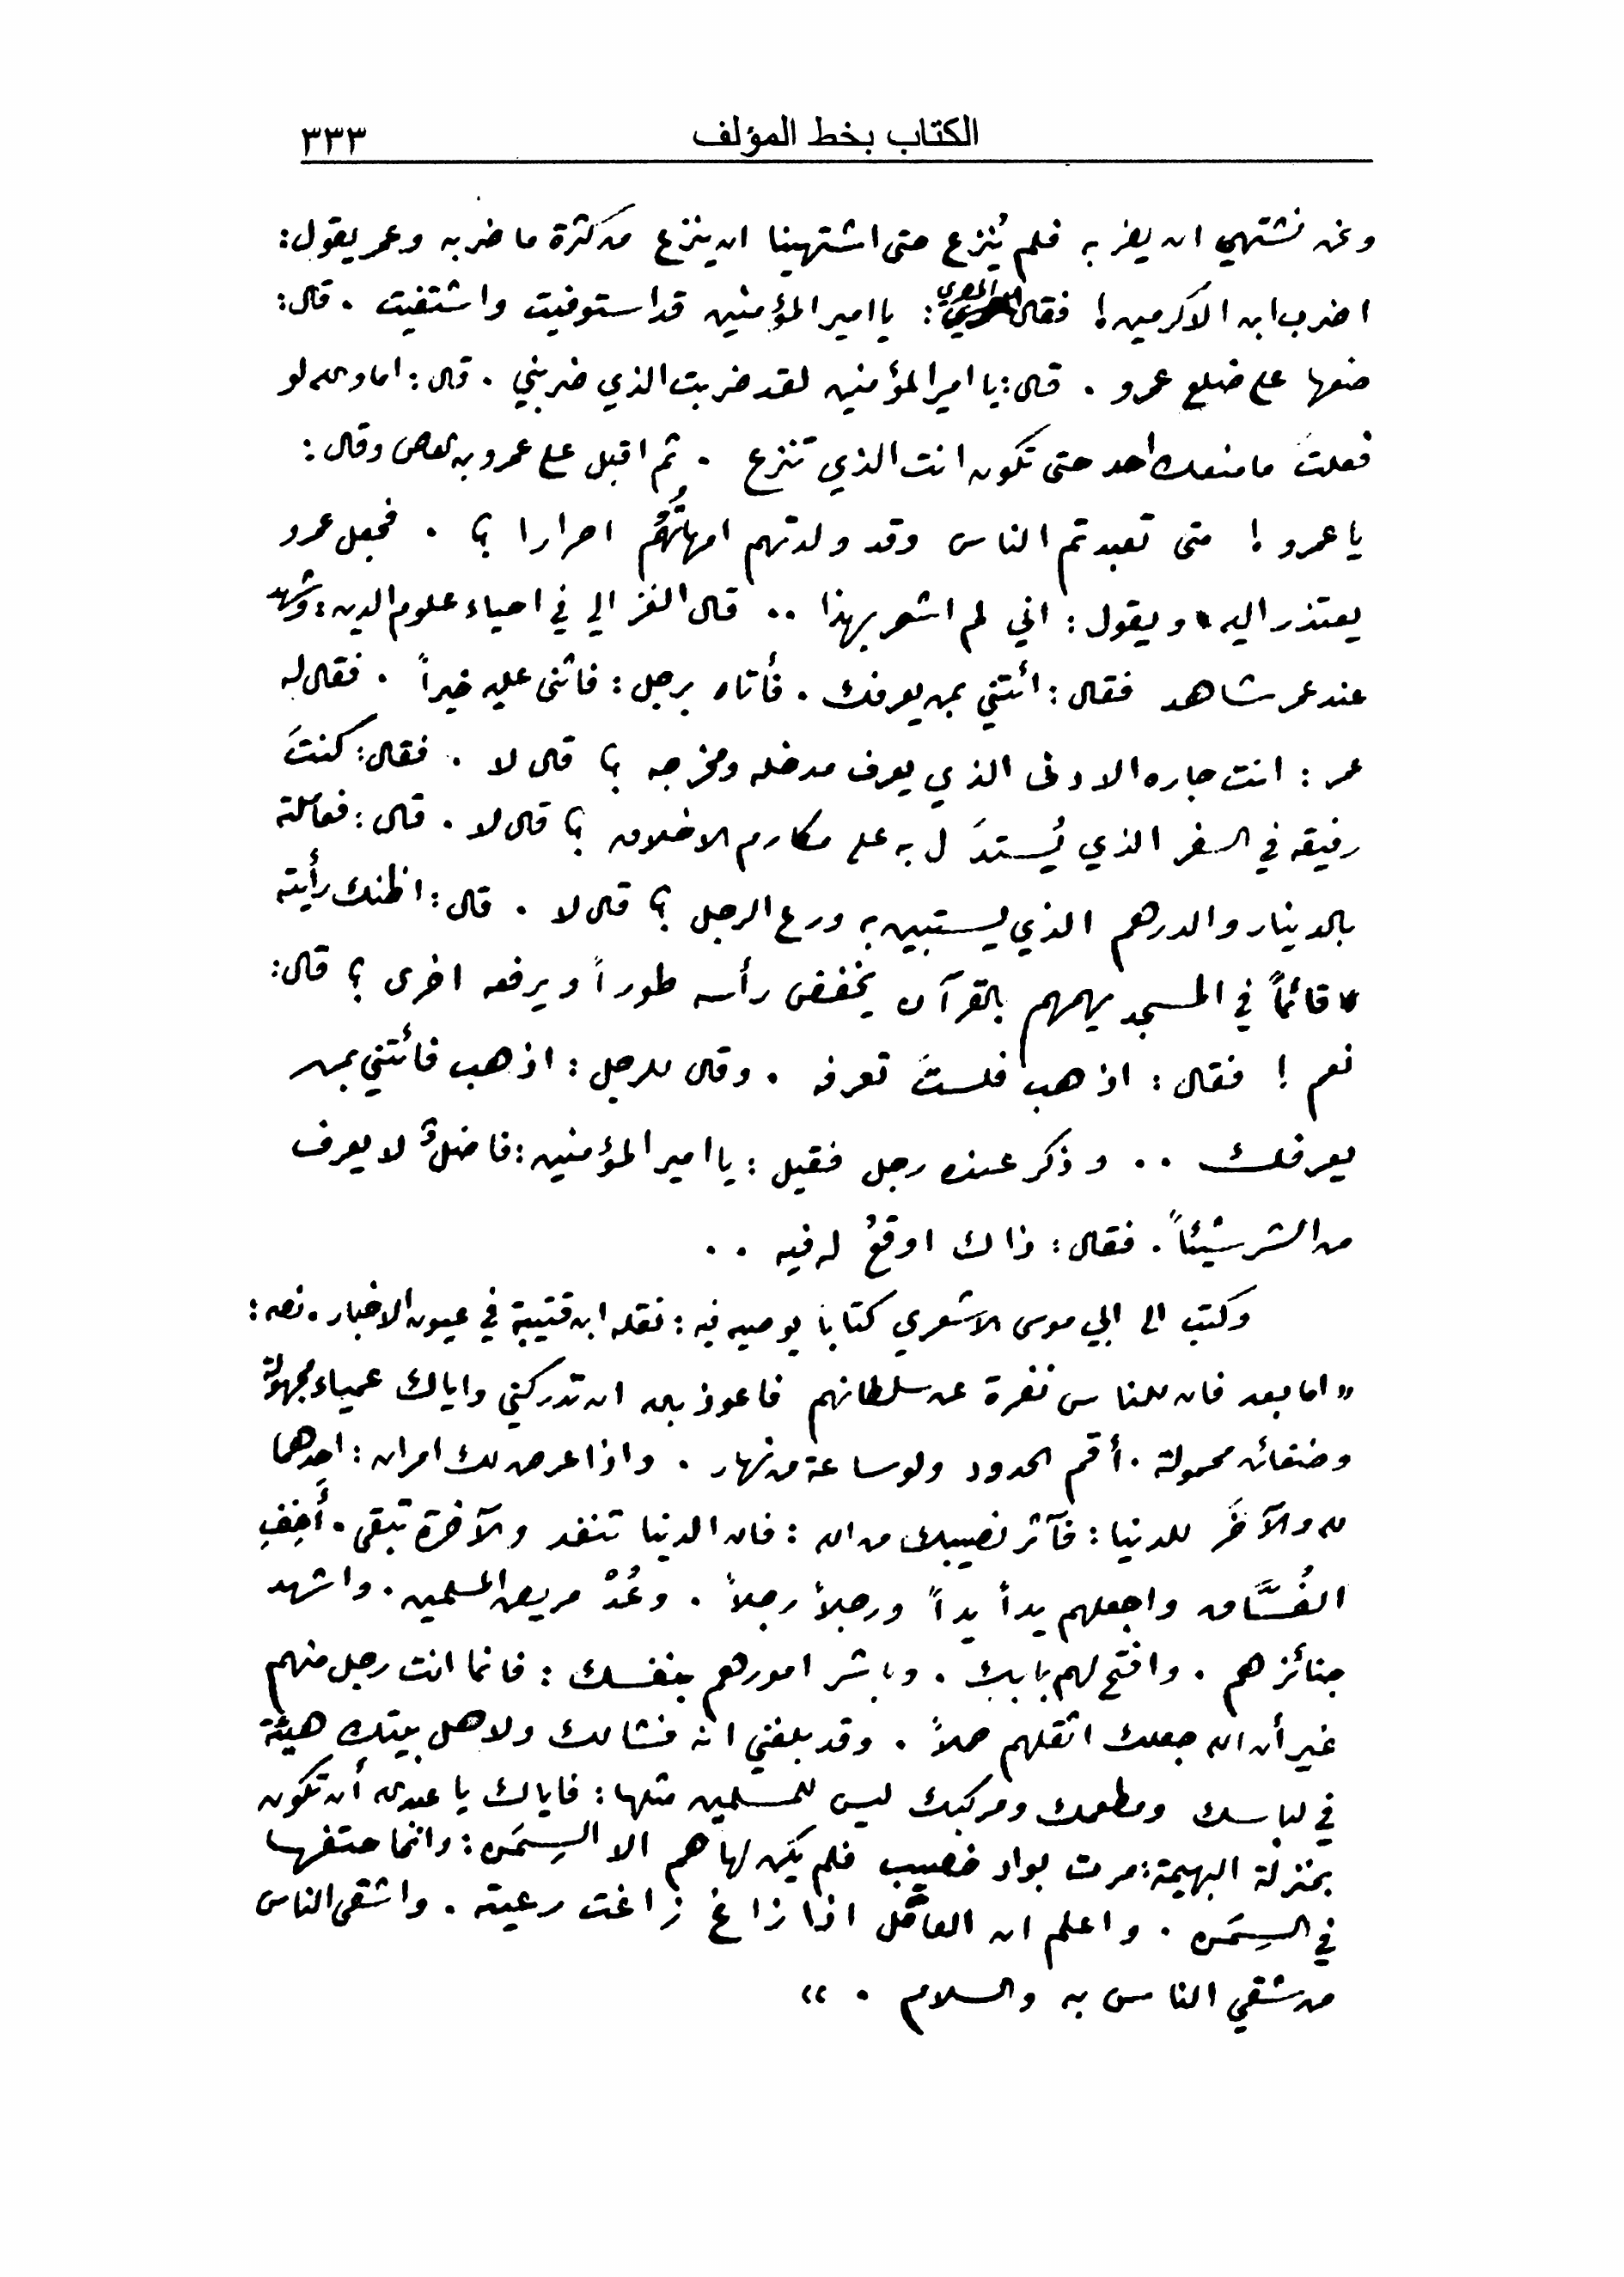 الكتاب بخط المؤلف ٣٣٣
ونحن نشتهي ان يضربه فلم يُنزع حتى اشتهينا ان ينزع من كثرة ما ضربه وعمر يقول:
اضرب ابن الاكرمين! فقال المصري: يا امير المؤمنين قد استوفيت واشتفيت. قال:
ضعها على ضلع عمرو. قال: يا امير المؤمنين لقد ضربت الذي ضربني. قال: اما والله لو
فعلتَ ما منعك احد حتى تكون انت الذي تنزع. ثم اقبل على عمرو بن العاص وقال:
يا عمرو! متى تعبدتم الناس وقد ولدتهم امهاتُهُم احرارا ؟. فجعل عمرو
يعتذر اليه ويقول: اني لم اشعر بهذا .. قال الغزالي في احياء علوم الدين: وشهد
عند عمر شاهد فقال: ائتني بمن يعرفك. فأتاه برجل: فاثنى عليه خيراً. فقال له
عمر: انت جاره الادنى الذي يعرف مدخله ومخرجه ؟ قال لا. فقال: كنتَ
رفيقه في السفر الذي يُستدَل به على مكارم الاخلاق ؟ قال لا. قال: فعاملته
بالدينار والدرهم الذي يستبين به ورع الرجل ؟ قال لا. قال: اظنك رأيته
قائماً في المسجد يهمهم بالقرآن يخفض رأسه طوراً ويرفعه اخرى ؟ قال:
نعم! فقال: اذهب فلستَ تعرفه. وقال للرجل: اذهب فائتني بمن
يعرفك .. وذكر عنده رجل فقيل: يا امير المؤمنين: فاضلٌ لا يعرف
من الشر شيئاً. فقال: ذاك اوقعُ له فيه ..
وكتب الى ابي موسى الاشعري كتابا يوصيه فيه: نقله ابن قتيبة في عيون الاخبار. نصه:
« اما بعد فان للناس نفرة عن سلطانهم فاعوذ بالله ان تدركني واياك عمياء مجهولة
وضغائن محمولة. أقم الحدود ولو ساعة من نهار. واذا عرض لك امران: احدهما
لله والآخَر للدنيا: فآثر نصيبك من الله: فان الدنيا تنفد والآخرة تبقى. أَخِفِ
الفُسَّاق واجعلهم يداً يداً ورجلاً رجلاً. وعُدْ مريض المسلمين. واشهد
جنائزهم. وافتح لهم بابك. وباشر امورهم بنفسك: فانما انت رجل منهم
غير أن الله جعلك اثقلهم حملاً. وقد بلغني انه فشا لك ولاهل بيتك هيئة
في لباسك ومطعمك ومركبك ليس للمسلمين مثلها: فاياك يا عبدالله أن تكون
بمنزلة البهيمة: مرت بواد خصيب فلم يكن لها هم الا السِمَن: وانما حتفها
في السِمَن. واعلم ان العامل اذا زاغ زاغت رعيته. واشقى الناس
من شقي الناس به والسلام. »